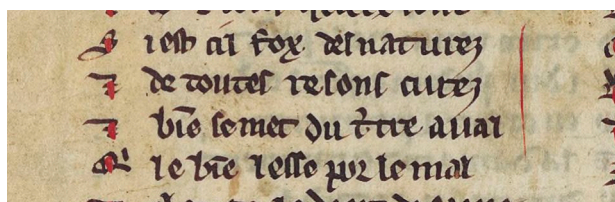 S iest cil fox desnaturez
⁊ de toutes resons curez
⁊ bīe se met du t̄tre aual
Qͥ le bīe lesse por le mal